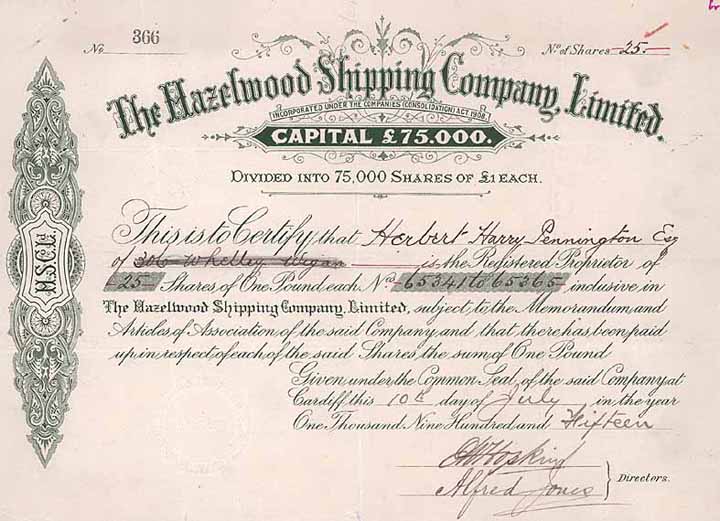 No 366
No. of Shares 25.-
The Hazelwood Shipping Company, Limited.
INCORPORATED UNDER THE COMPANIES (CONSOLIDATION) ACT, 1908.
CAPITAL £75.000.
DIVIDED INTO 75,000 SHARES OF £1 EACH.
This is to Certify, that Herbert Harry Pennington Esq
of 306 Whelley Wigan is the Registered Proprietor of
-25- Shares of One Pound each, Nos 65341 to 65365 inclusive in
The Hazelwood Shipping Company, Limited, subject to the Memorandum and
Articles of Association of the said Company, and that there has been paid
up in respect of each of the said Shares, the sum of One Pound
Given under the Common Seal, of the said Company at
Cardiff this 10th day of July in the year
One Thousand Nine Hundred and Fifteen
Hosking
Alfred Jones
Directors.
H.S.C. Ld.